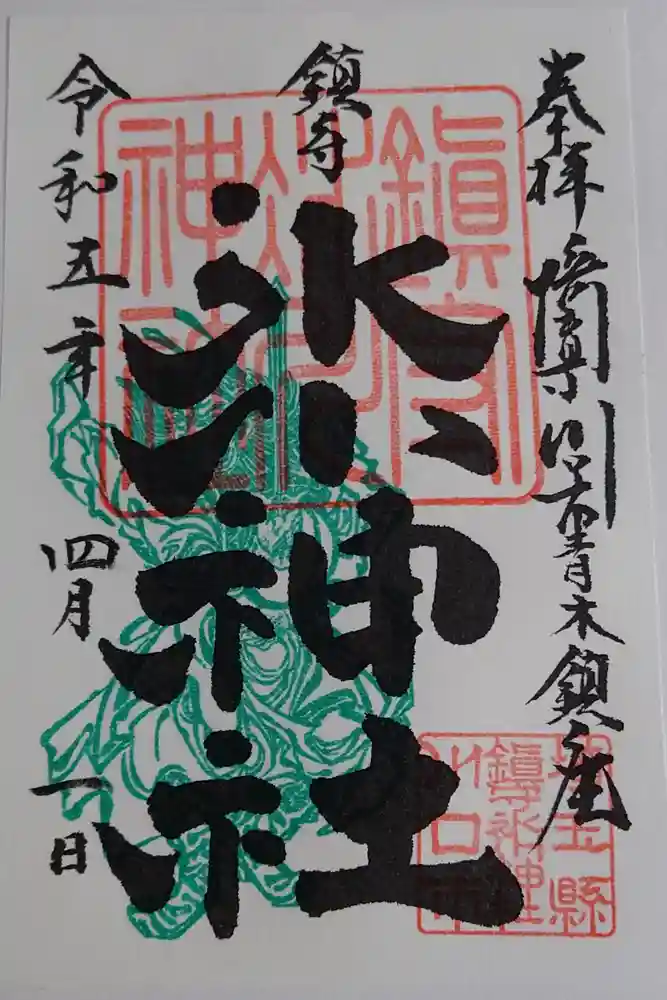 奉拝 埼玉県川口市青木鎮座
鎮守
氷川神社
令和五年 四月 一日
鎮守
氷川
神社
埼玉縣
鎮守氷川神社
川口市